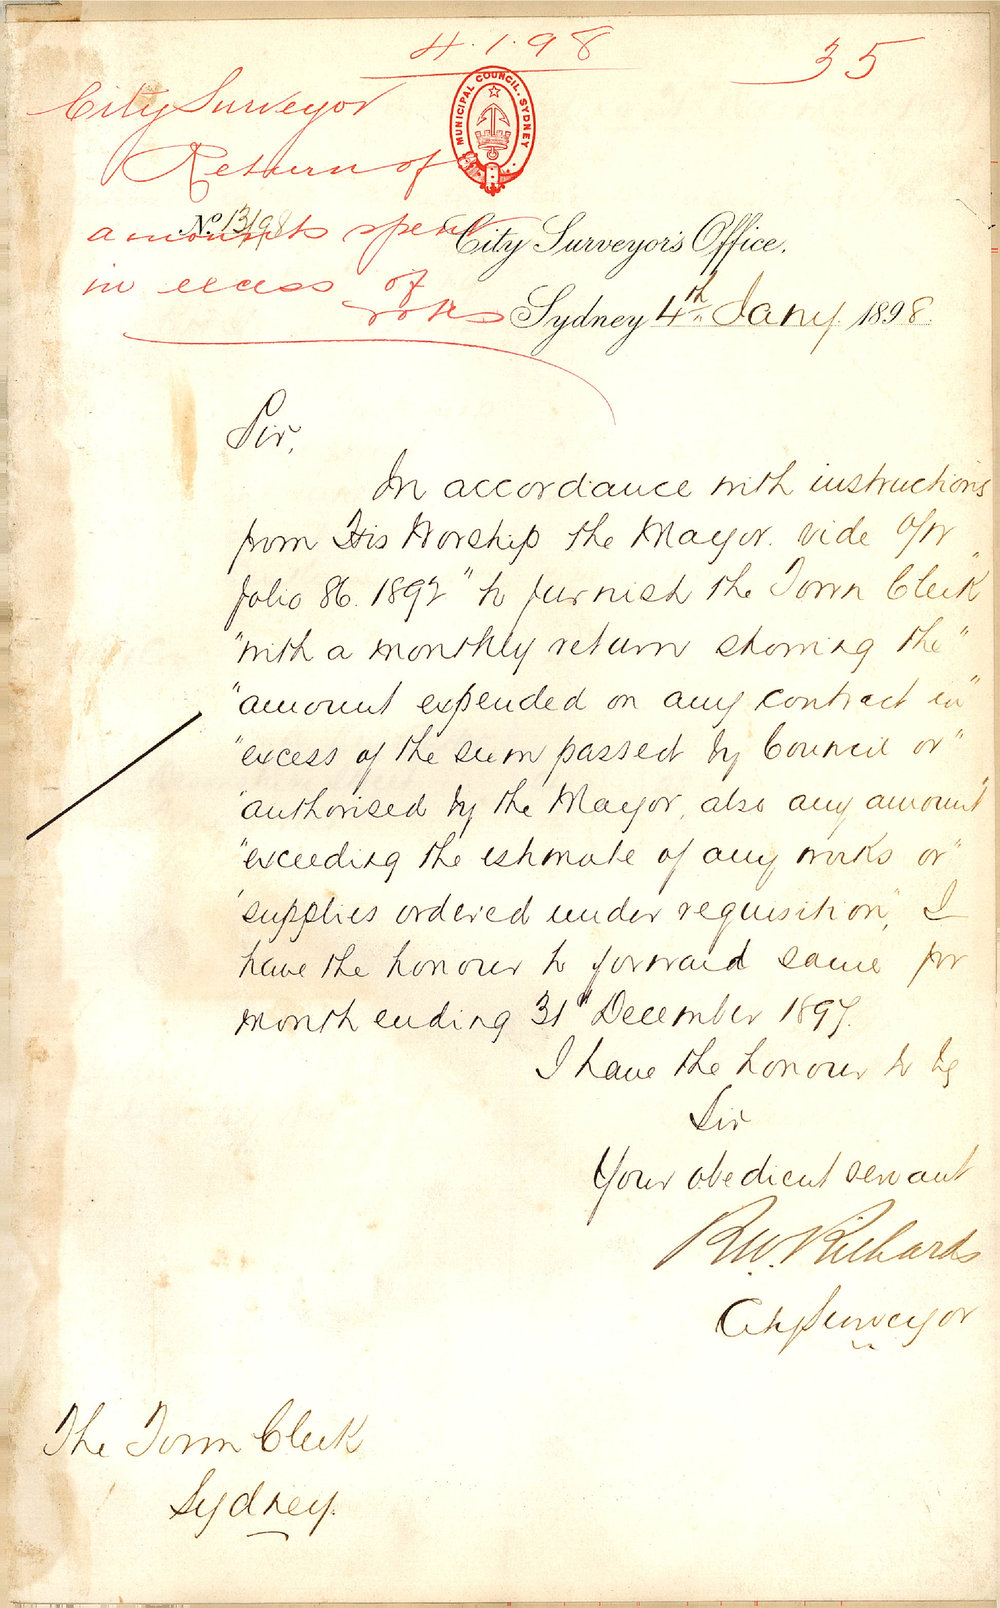 4.1.98
35
City Surveyor
MUNICIPAL COUNCIL. SYDNEY
Return of
No. 13/98
amounts spent
City Surveyor's Office.
in excess of
votes
Sydney 4th Jany. 1898
Sir,
In accordance with instructions
from His Worship the Mayor. vide
folio 86. 1892 "to furnish the Town Clerk"
"with a monthly return showing the"
"amount expended on any contract in"
"excess of the sum passed by Council or"
"authorised by the Mayor, also any amount"
"exceeding the estimate of any works or"
"supplies ordered under requisition", I
have the honour to forward same for
month ending 31st December 1897.
I have the honour to be
Sir
Your obedient servant
R.W. Richards
City Surveyor
The Town Clerk
Sydney.